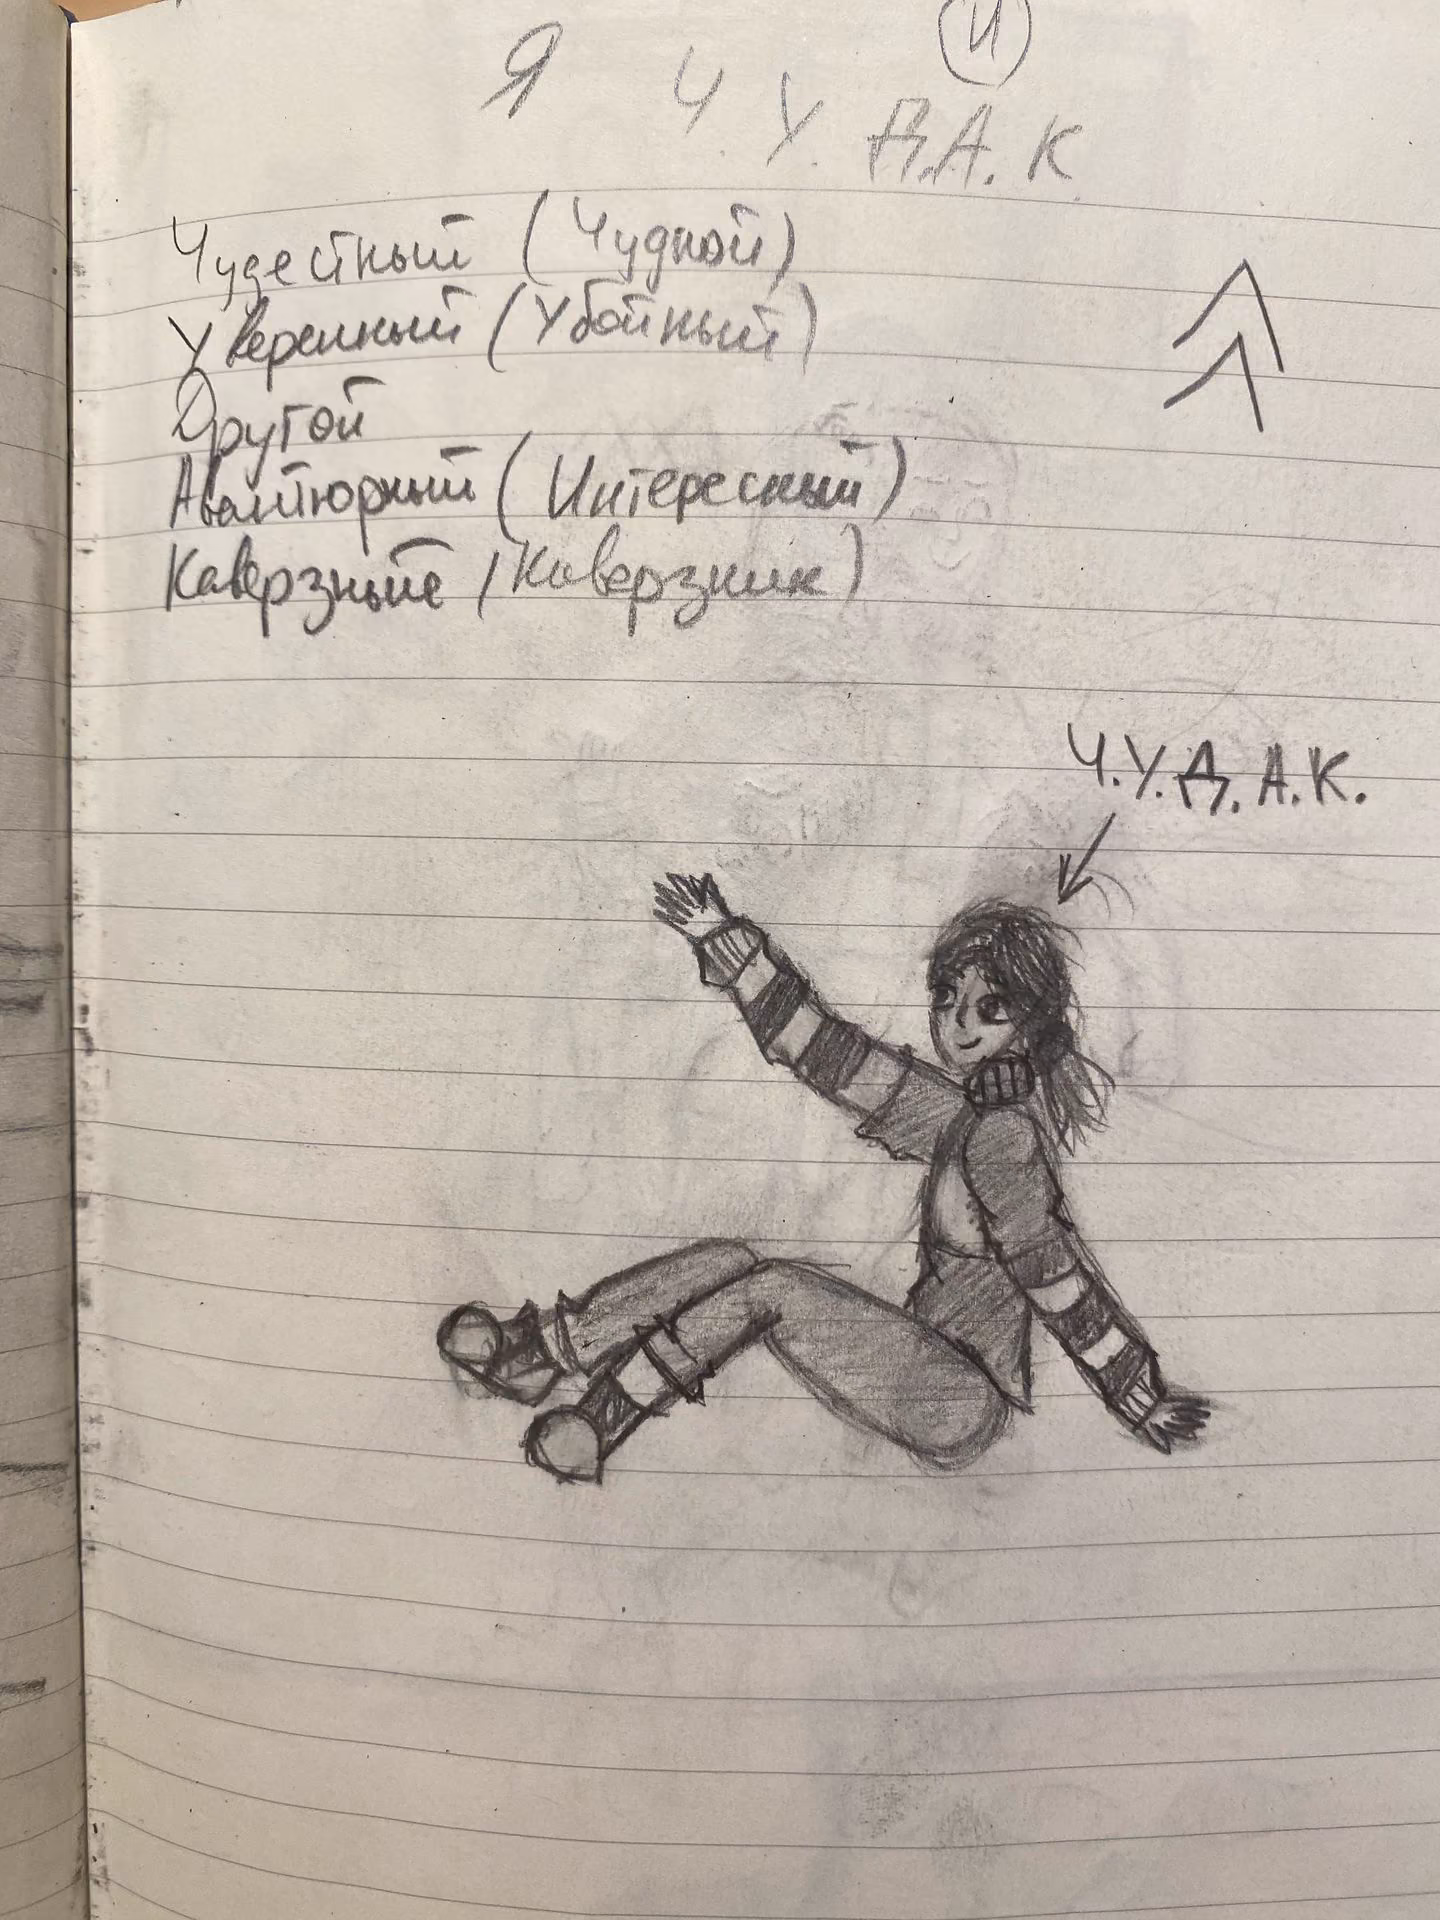 И
Я Ч.У.Д.А.К
Чудестный (Чудной)
Уверенный (Убойный)
Другой
Авантюрный (Интересный)
Каверзный (Каверзник)
Ч.У.Д.А.К.